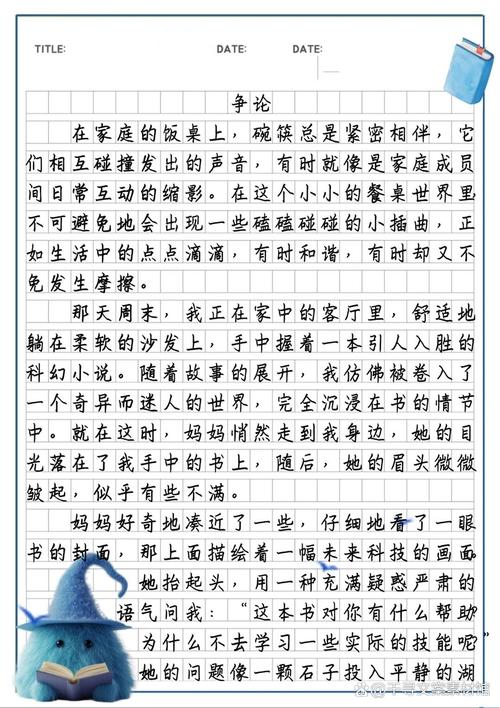 TITLE: DATE: DATE:
争论
在家庭的饭桌上，碗筷总是紧密相伴，它
们相互碰撞发出的声音，有时就像是家庭成员
间日常互动的缩影。在这个小小的餐桌世界里
不可避免地会出现一些磕磕碰碰的小插曲，正
如生活中的点点滴滴，有时和谐，有时却又不
免发生摩擦。
那天周末，我正在家中的客厅里，舒适地
躺在柔软的沙发上，手中握着一本引人入胜的
科幻小说。随着故事的展开，我仿佛被卷入了
一个奇异而迷人的世界，完全沉浸在书的情节
中。就在这时，妈妈悄然走到我身边，她的目
光落在了我手中的书上，随后，她的眉头微微
皱起，似乎有些不满。
妈妈好奇地凑近了一些，仔细地看了一眼
书的封面，那上面描绘着一幅未来科技的画面
她抬起头，用一种充满疑惑严肃的
语气问我：“这本书对你有什么帮助
为什么不去学习一些实际的技能呢”
她的问题像一颗石子投入平静的湖
@千寻文案素材馆